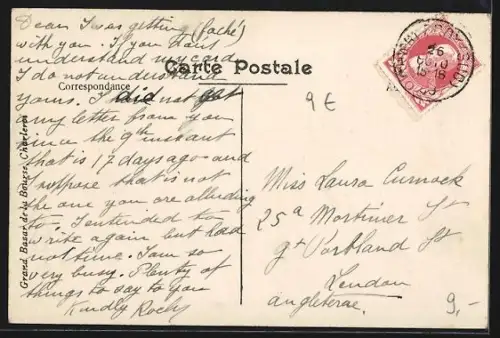 Dear I was getting (faché)
with you. If you dont
understand my card
I do not understand
yours. I did not get
any letter from you
since the 9th instant
that is 17 days ago and
I suppose that is not
the one you are alluding
to. I intended to
write again but had
not time. I am so
very busy. Plenty of
things to say to you
Kindly
Carte Postale
Correspondance
Grand Bazar de la Bourse, Charleroi
9 €
26
Miss Laura Curnock
25a Mortimer St
gt Portland St
London
Angleterre.
9,-